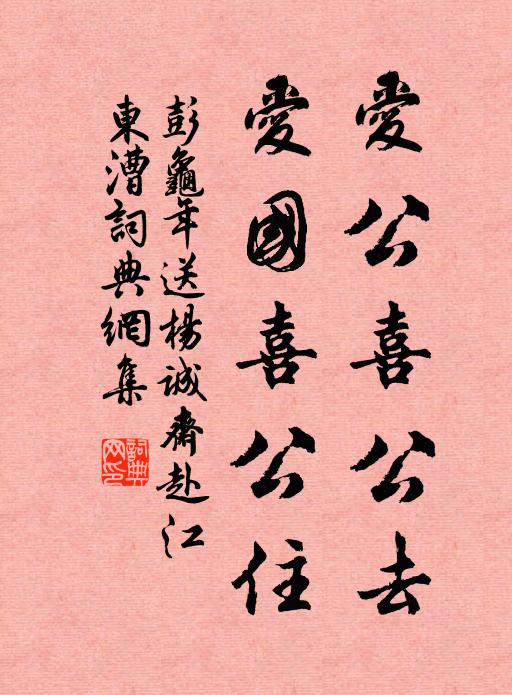 愛公喜公去
愛國喜公住
彭龜年送楊誠齋赴江
東漕詞典網集
詞典
网印